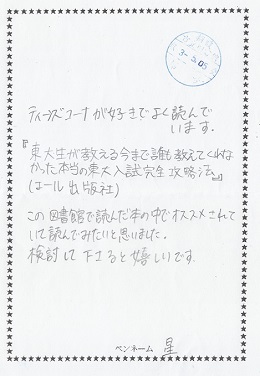 3.-5.05
ティーンズコーナーが好きでよく読んで
います。
『東大生が教える今まで誰も教えてくれな
かった本当の東大入試完全攻略法』
(エール出版社)
この図書館で読んだ本の中でオススメされて
いて読んでみたいと思いました。
検討して下さると嬉しいです。
ペンネーム 星